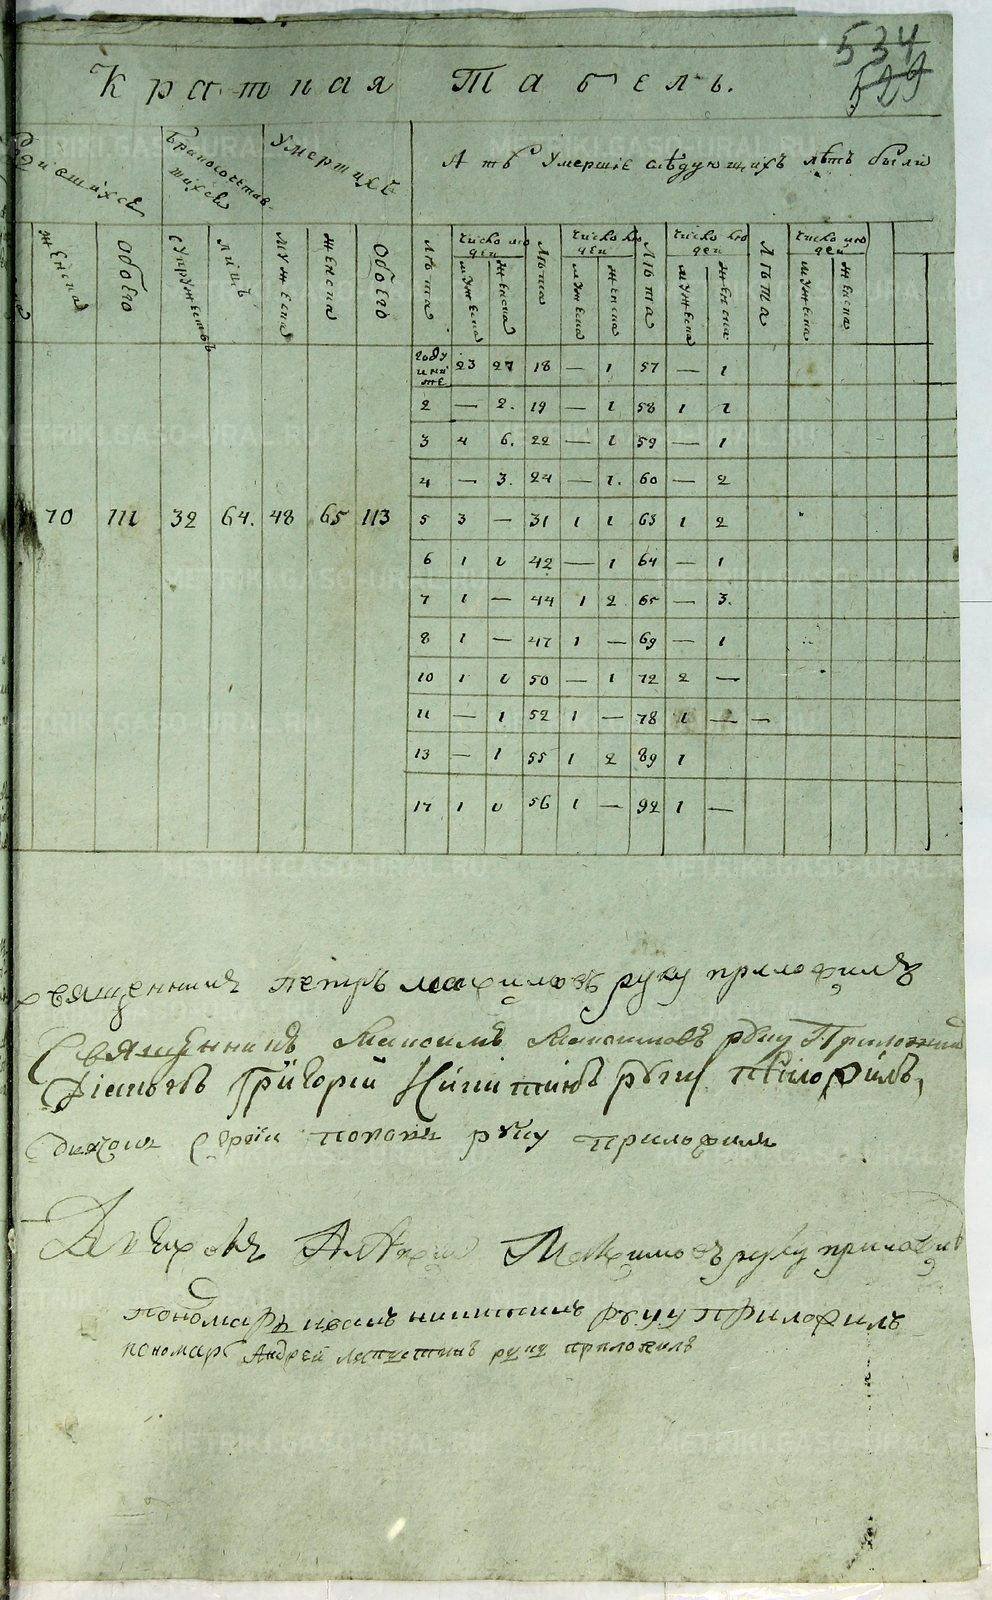 534
529
Кратная Табель.
Браkосочетав-
шихся
Умершихъ
А тѣ Умершiе слѣдующихъ лѣтъ были
женска
Обоего
Супружествъ
лицъ
мужеска
женска
Обоего
Лѣта
число лю
дей
мужеска
женска
Лѣта
число лю
дей
мужеска
женска
Лѣта
число лю
дей
мужеска
женска
Лѣта
число лю
дей
мужеска
женска
году
и ни
же 23 27 18 — 1 57 — 1
2 — 2. 19 — 1 58 1 1
3 4 6. 22 — 1 59 — 1
4 — 3. 24 — 1. 60 — 2
70 111 32 64. 48 65 113 5 3 — 31 1 1 63 1 2
6 1 0 42 — 1 64 — 1
7 1 — 44 1 2 65 — 3.
8 1 — 47 1 — 69 — 1
10 1 0 50 — 1 72 2 —
11 — 1 52 1 — 78 1 — —
13 — 1 55 1 2 89 1
17 1 0 56 1 — 92 1 —
священникъ петръ руку приложилъ
Священникъ Максимъ руку Приложилъ
Дiаконъ Григорiй Никитинъ руку приложилъ,
дiяконъ поповъ руку приложилъ
Максимовъ руку приложилъ
пономарь иванъ никитинъ руку приложилъ
пономарь Андрей лапустинъ руку приложилъ
METRIKI.GASO-URAL.RU